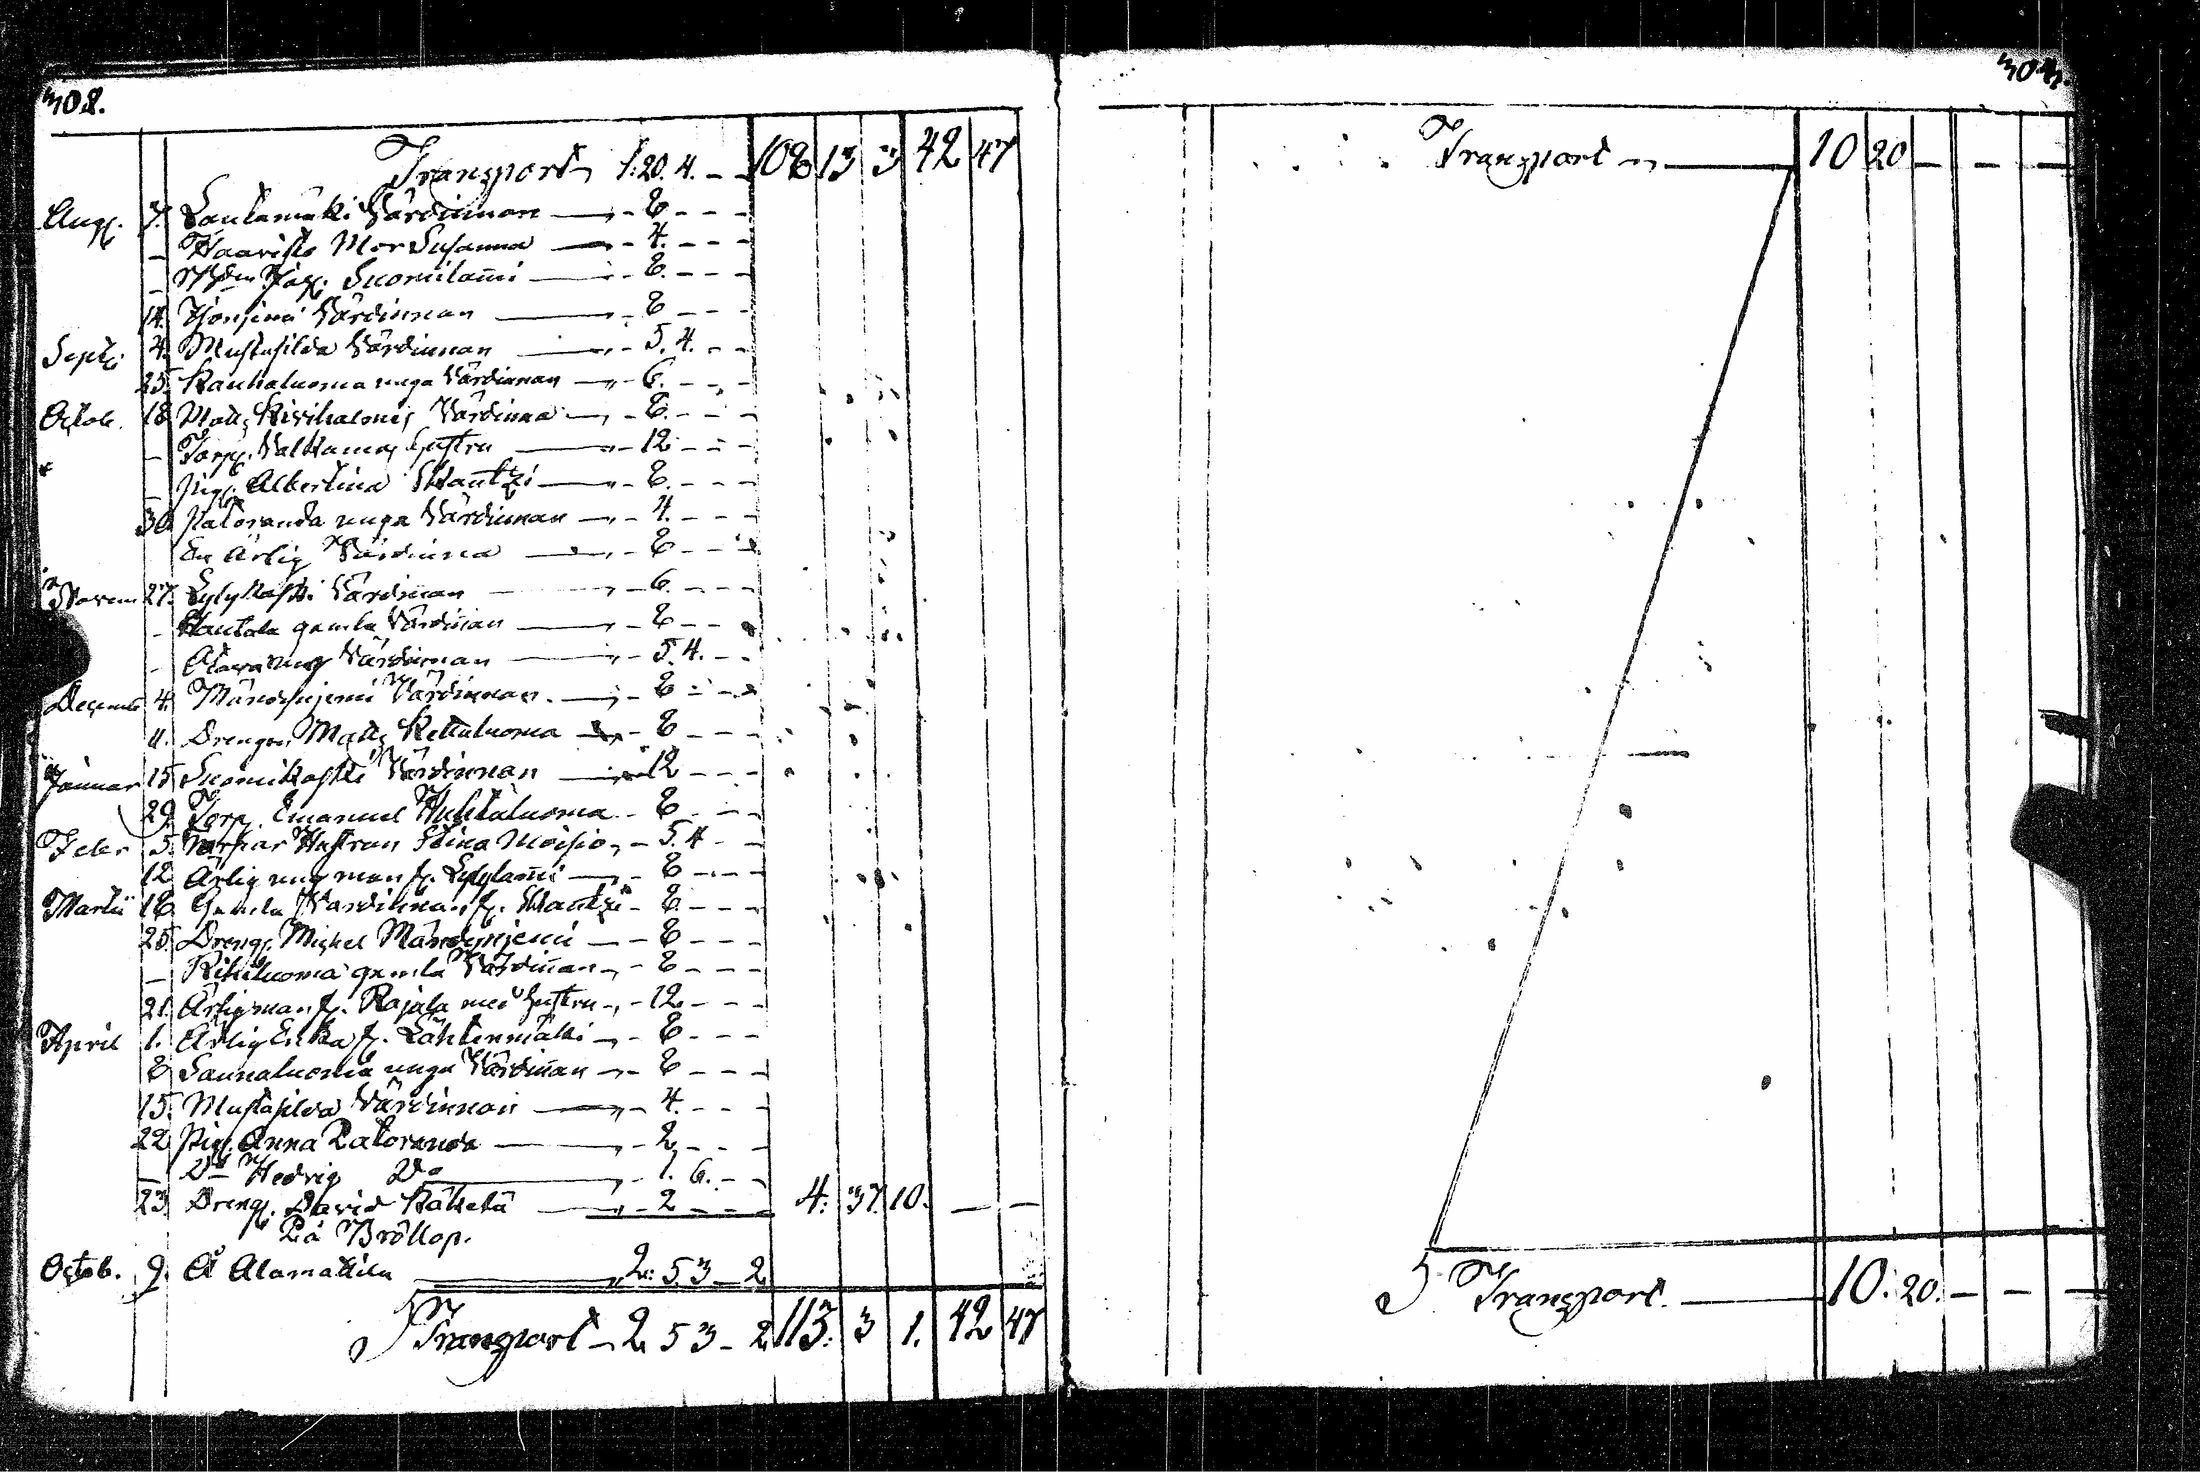 308.
Transport 1:20. 4. - - 108 13 3 42 47
Aug. 7. Lautamäki Värdinnan - 8 - - -
- Haavisto Mor Susanna - 4. - - -
- Suomilam̄i - 8. - - -
14. Värdinnan - 8 - - -
Sept. 4. Mustasilda Värdinnan - 5. 4. - -
25. Kauhaluoma unga Värdinnan - 6. - - -
Octob. 18. Matts Värdinna - 8. - - -
- Torp. Valkamas hustru - 12 - - -
- Pig. Albertina Skantzi - 8. - - -
30. Patoranda unga Värdinnan - 4. - - -
En Ärlig Värdinna - 8 - - -
Novem 27. Lylykoski Värdinnan - 6. - - -
- Hautala gamla Värdin̄an - 8 - - -
- Värdinnan - 5. 4. - -
4. Värdinnan - 8 - - -
11. Drengen Matts Kettuluoma - 8 - - -
Januar 15 Suomikoski Värdinnan - 12 - - -
29. Torp. Emanuel Huhtaluoma - 8 - - -
Febr 5. Hustrun Stina Moisio - 5. 4 - -
12. Ärlig ung man f. Lylylam̄i - 8 - - -
Martii 18. Gamla Värdinnan f. Skantzi - 8. - - -
25. Dreng. Michel - 8 - - -
- gamla Värdin̄an - 8 - - -
21. Ärlig man f. Rajala med hustru - 12 - - -
April 1. Ärlig Erika f. Lähtenmäki - 8 - - -
8 Saunaluoma unga Värdin̄an - 8 - - -
15. Mustasilda Värdinnan - 4. - - -
22 Pig. Anna Patoranda - 2 - - -
- Do Hedvig Do - 1. 6. - -
23. Dreng. David - 2 - - - 4. 37. 10. - -
På Bröllop.
Octob. 9. Å Alamattila 2: 53 - 2
Transport 2 53 - 2 113. 3 1. 42 47
304.
Transport 10 20 - - -
Transport. 10. 20. - - -